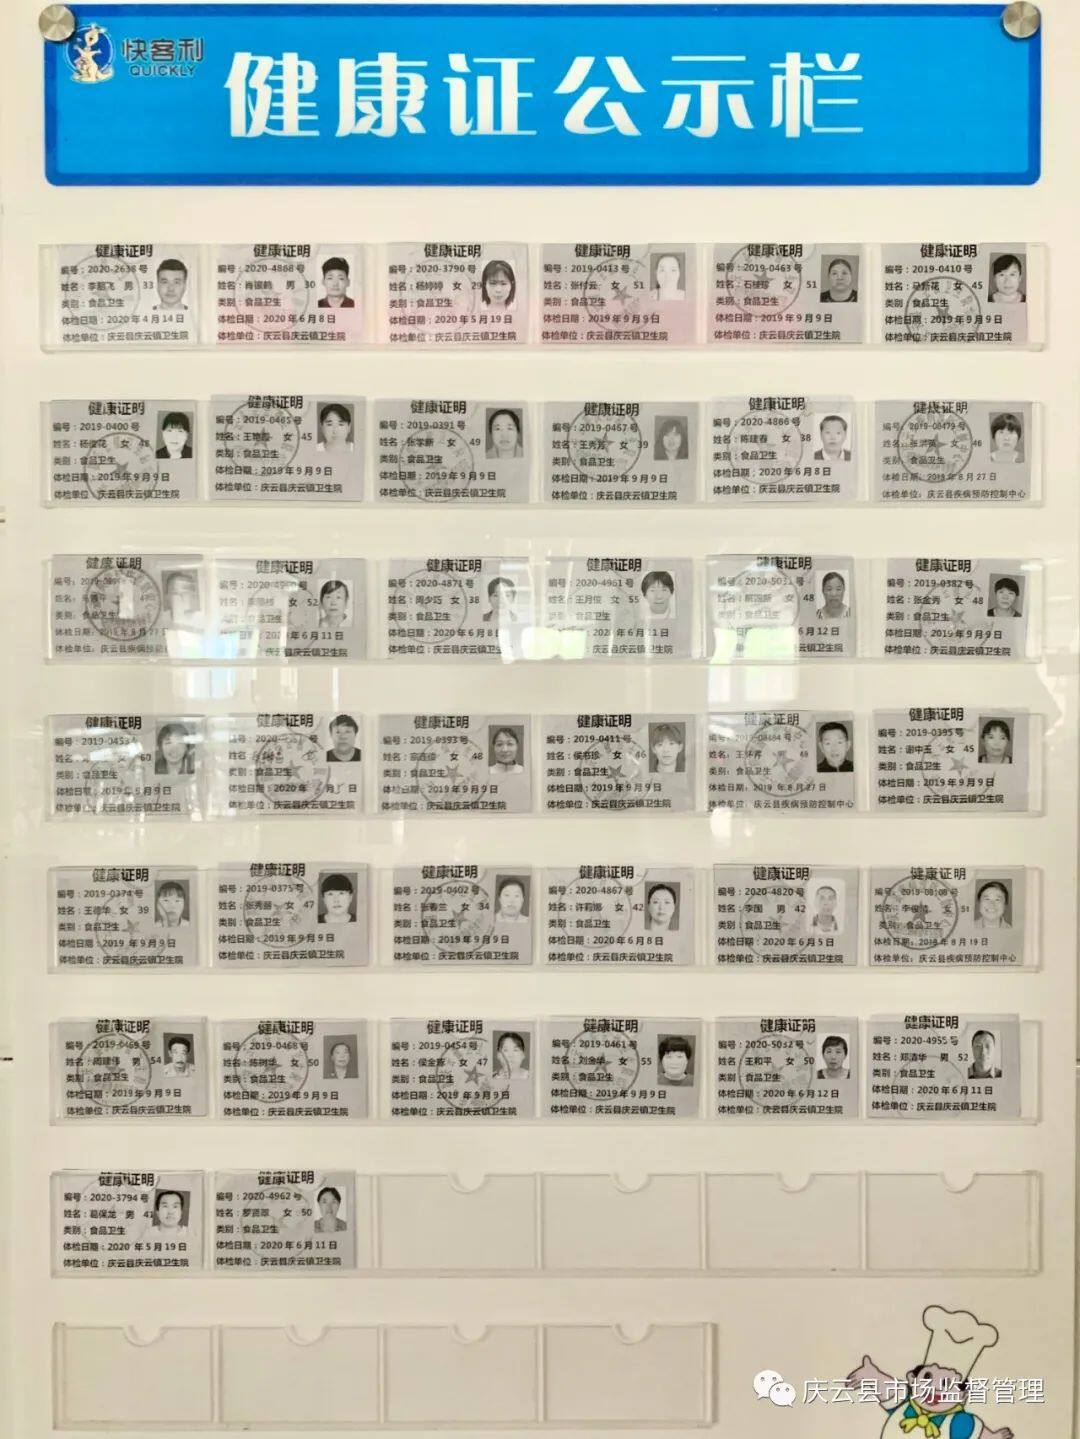 快客利
QUICKLY
健康证公示栏
健康证明
编号：2020-2638号
姓名：李鹏飞 男 33
类别：食品卫生
体检日期：2020年4月14日
体检单位：庆云县庆云镇卫生院
健康证明
编号：2020-4868号
姓名：肖银鹤 男 30
类别：食品卫生
体检日期：2020年6月8日
体检单位：庆云县庆云镇卫生院
健康证明
编号：2020-3790号
姓名：杨婷婷 女 29
类别：食品卫生
体检日期：2020年5月19日
体检单位：庆云县庆云镇卫生院
健康证明
编号：2019-0413号
姓名：张付云 女 51
类别：食品卫生
体检日期：2019年9月9日
体检单位：庆云县庆云镇卫生院
健康证明
编号：2019-0463号
姓名：女 51
类别：食品卫生
体检日期：2019年9月9日
体检单位：庆云县庆云镇卫生院
健康证明
编号：2019-0410号
姓名：女 45
类别：食品卫生
体检日期：2019年9月9日
体检单位：庆云县庆云镇卫生院
健康证明
编号：2019-0400号
姓名：女 48
类别：食品卫生
体检日期：2019年9月9日
体检单位：庆云县庆云镇卫生院
健康证明
编号：2019-0465号
姓名：女 45
类别：食品卫生
体检日期：2019年9月9日
体检单位：庆云县庆云镇卫生院
健康证明
编号：2019-0391号
姓名：张学新 女 49
类别：食品卫生
体检日期：2019年9月9日
体检单位：庆云县庆云镇卫生院
健康证明
编号：2019-0467号
姓名：王秀芳 女 39
类别：食品卫生
体检日期：2019年9月9日
体检单位：庆云县庆云镇卫生院
健康证明
编号：2020-4866号
姓名：陈建春 女 38
类别：食品卫生
体检日期：2020年6月8日
体检单位：庆云县庆云镇卫生院
健康证明
编号：2019-08479号
姓名：女 46
类别：食品卫生
体检日期：2019年8月27日
体检单位：庆云县疾病预防控制中心
健康证明
编号：
姓名：
类别：食品卫生
体检日期：
体检单位：庆云县疾病预防
健康证明
编号：
姓名：女 52
食品卫生
6月11日
庆云县庆云镇卫生院
健康证明
编号：2020-4871号
姓名：周少巧 女 38
类别：食品卫生
体检日期：2020年6月8日
体检单位：庆云县庆云镇卫生院
健康证明
编号：2020-4961号
姓名：王月俊 女 55
类别：食品卫生
6月11日
庆云县庆云镇卫生院
健康证明
编号：2020-5031号
姓名：女 48
类别：食品卫生
6月12日
卫生院
健康证明
编号：2019-0382号
姓名：张金秀 女 48
类别：食品卫生
体检日期：2019年9月9日
体检单位：庆云县庆云镇卫生院
健康证明
编号：2019-0453号
姓名：女 60
类别：食品卫生
体检日期：2019年9月9日
体检单位：庆云县庆云镇卫生院
健康证明
姓名：
类别：食品卫生
体检日期：2020年
体检单位：庆云县庆云镇卫生院
健康证明
编号：2019-0393号
姓名：女 48
类别：食品卫生
体检日期：2019年9月9日
体检单位：庆云县庆云镇卫生院
健康证明
编号：2019-0411号
姓名：侯书珍 女 46
类别：食品卫生
体检日期：2019年9月9日
体检单位：庆云县庆云镇卫生院
健康证明
编号：2019-08484号
姓名：
类别：食品卫生
体检日期：2019年8月27日
体检单位：庆云县疾病预防控制中心
健康证明
编号：2019-0395号
姓名：谢中玉 女 45
类别：食品卫生
体检日期：2019年9月9日
体检单位：庆云县庆云镇卫生院
健康证明
编号：2019-0374号
姓名：王德华 女 39
类别：食品卫生
体检日期：2019年9月9日
体检单位：庆云县庆云镇卫生院
健康证明
编号：2019-0375号
姓名：张秀丽 女 47
类别：食品卫生
体检日期：2019年9月9日
体检单位：庆云县庆云镇卫生院
健康证明
编号：2019-0402号
姓名：张春兰 女 34
类别：食品卫生
体检日期：2019年9月9日
体检单位：庆云县庆云镇卫生院
健康证明
编号：2020-4867号
姓名：许莉娜 女 42
类别：食品卫生
体检日期：2020年6月8日
体检单位：庆云县庆云镇卫生院
健康证明
编号：2020-4820号
姓名：李国 男 42
类别：食品卫生
体检日期：2020年6月5日
体检单位：庆云县庆云镇卫生院
健康证明
编号：
姓名：女 51
类别：食品卫生
体检日期：2019年8月19日
体检单位：庆云县疾病预防控制中心
健康证明
编号：2019-0469号
姓名：周建伟 男 54
类别：食品卫生
体检日期：2019年9月9日
体检单位：庆云县庆云镇卫生院
健康证明
编号：2019-0468号
姓名：陈树华 女 50
类别：食品卫生
体检日期：2019年9月9日
体检单位：庆云县庆云镇卫生院
健康证明
编号：2019-0454号
姓名：侯金栋 女 47
类别：食品卫生
体检日期：2019年9月9日
体检单位：庆云县庆云镇卫生院
健康证明
编号：2019-0461号
姓名：刘金华 女 55
类别：食品卫生
体检日期：2019年9月9日
体检单位：庆云县庆云镇卫生院
健康证明
编号：2020-5032号
姓名：王和平 女 50
类别：食品卫生
体检日期：2020年6月12日
体检单位：庆云县庆云镇卫生院
健康证明
编号：2020-4955号
姓名：郑清华 男 52
类别：食品卫生
体检日期：2020年6月11日
体检单位：庆云县庆云镇卫生院
健康证明
编号：2020-3794号
姓名：葛保龙 男 41
类别：食品卫生
体检日期：2020年5月19日
体检单位：庆云县庆云镇卫生院
健康证明
编号：2020-4962号
姓名：罗贤翠 女 50
类别：食品卫生
体检日期：2020年6月11日
体检单位：庆云县庆云镇卫生院
庆云县市场监督管理